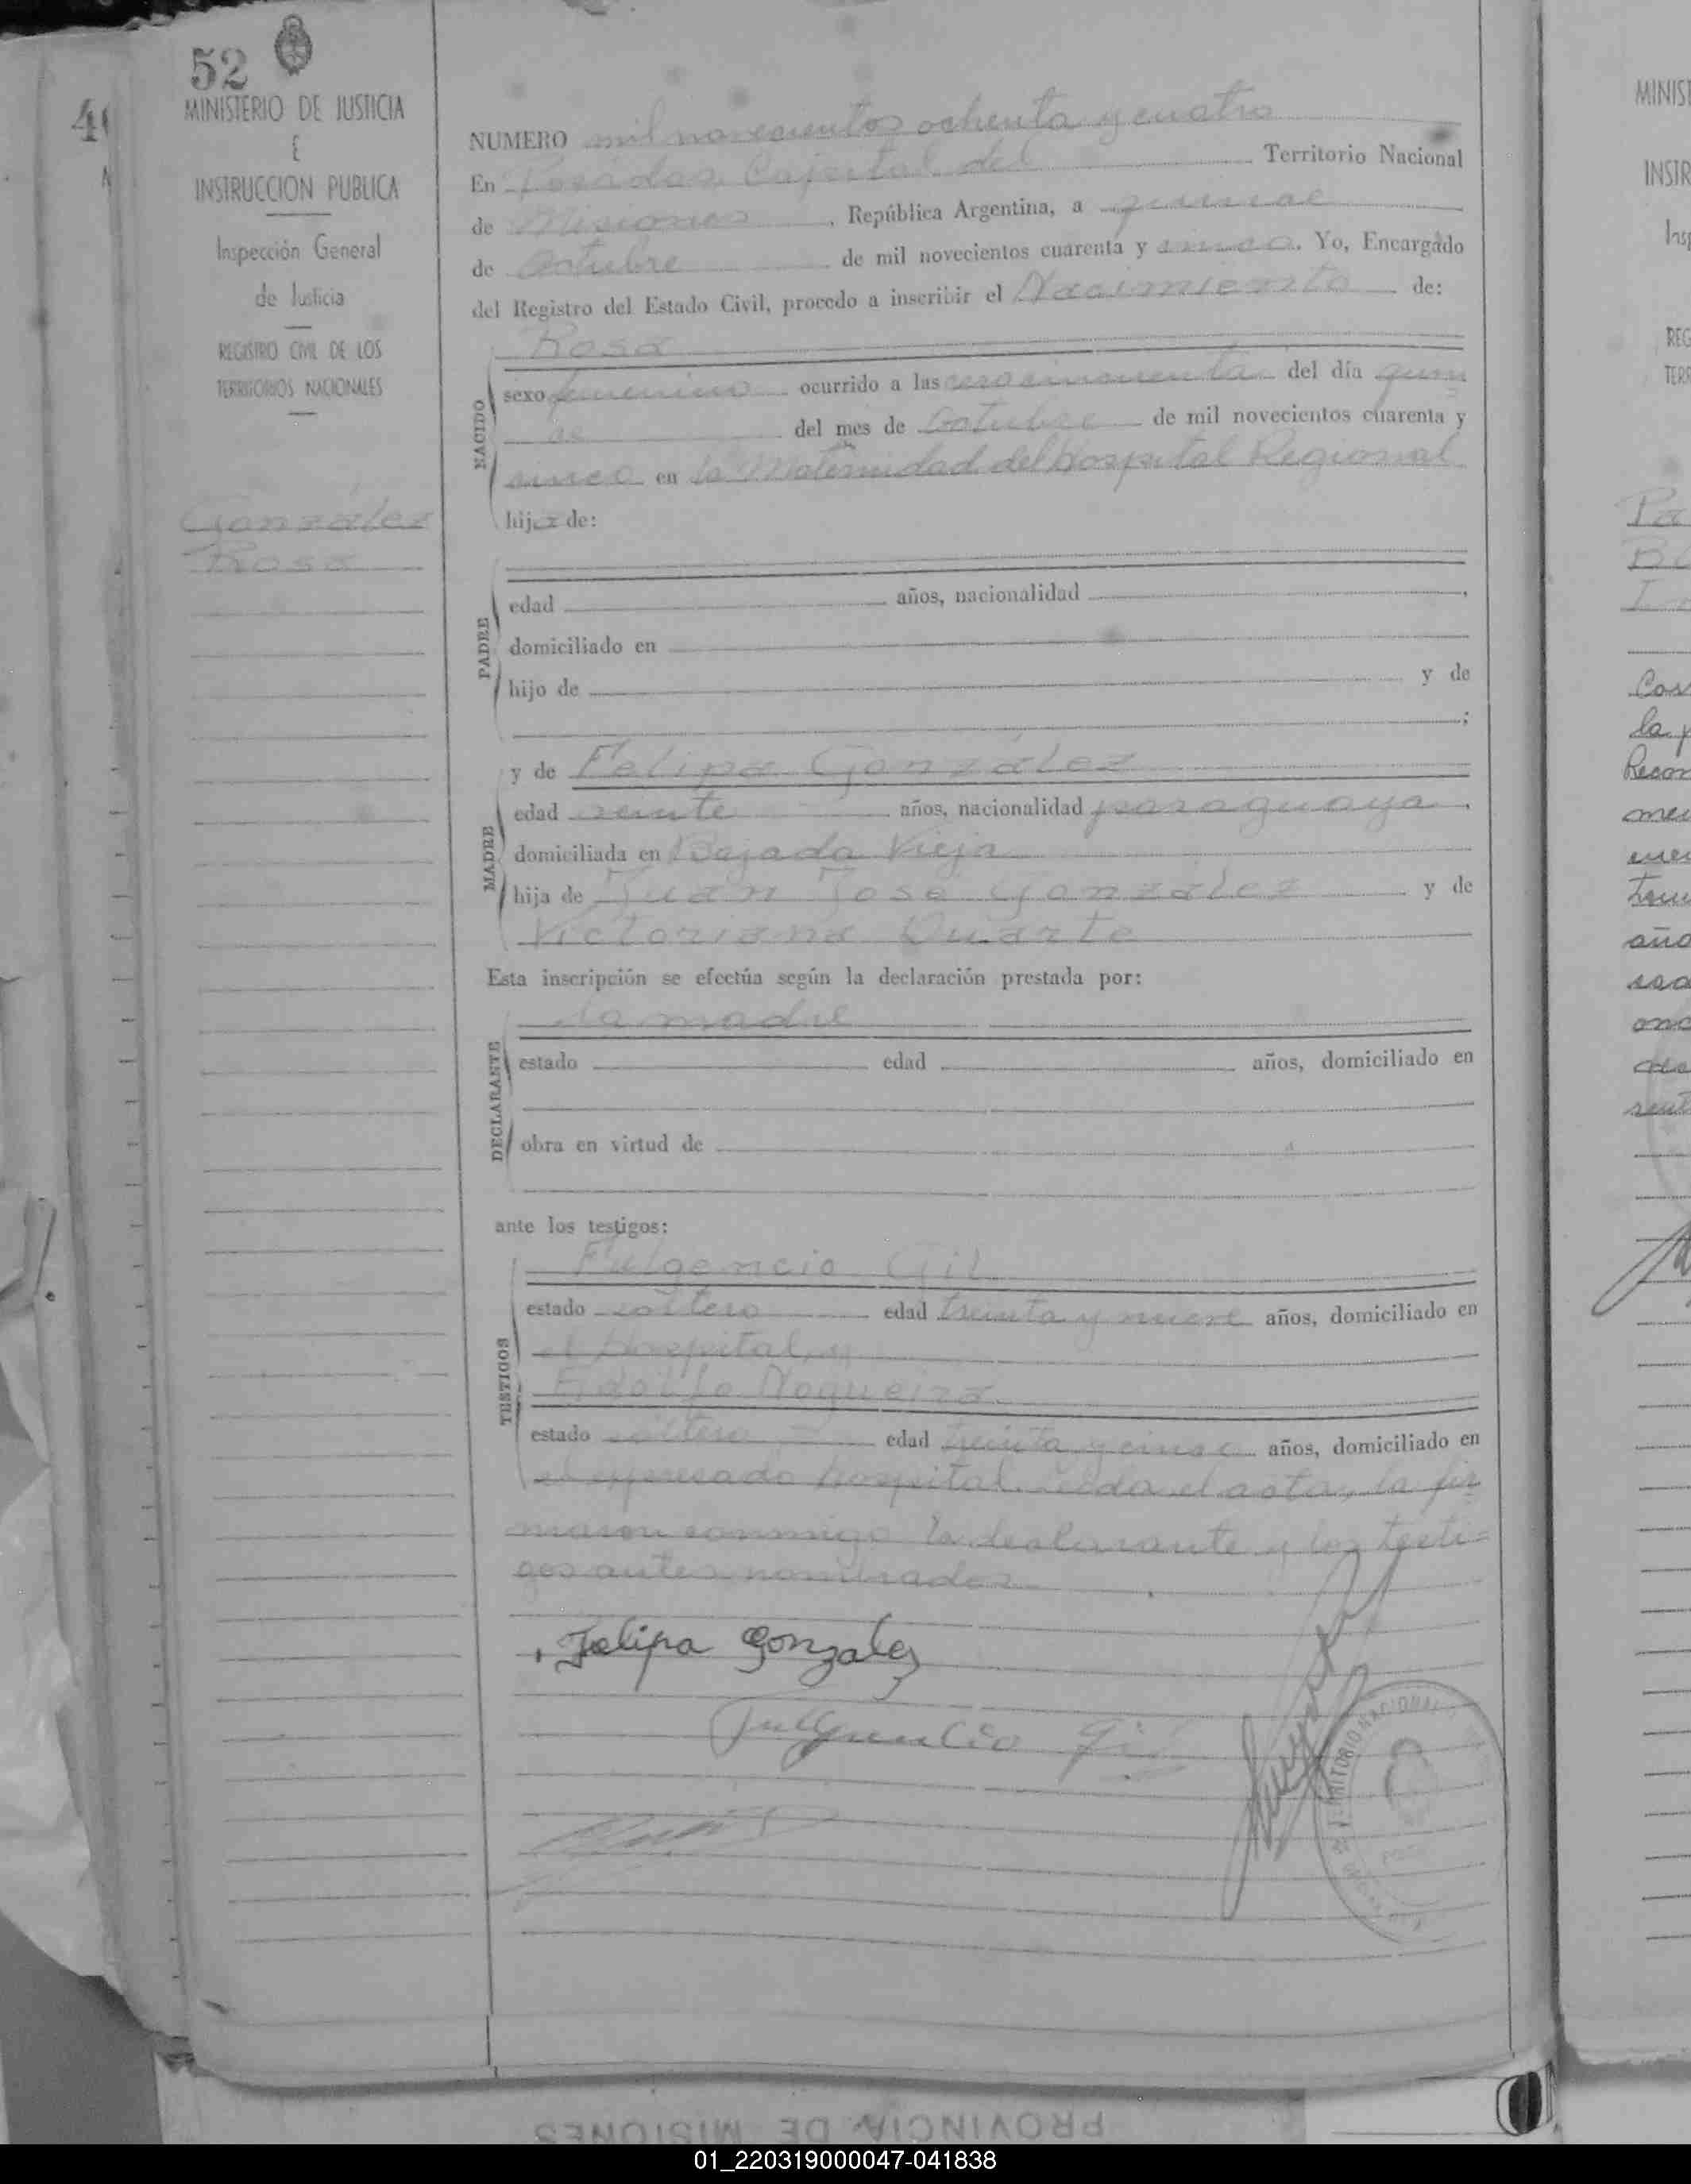 52
MINISTERIO DE JUSTICIA
E
INSTRUCCION PUBLICA
Inspección General
de Justicia
REGISTRO CIVIL DE LOS
TERRITORIOS NACIONALES
González
Rosa
NUMERO mil novecientos ochenta y cuatro
En Posadas, Capital del Territorio Nacional
de Misiones, República Argentina, a quince
de Octubre de mil novecientos cuarenta y cinco. Yo, Encargado
del Registro del Estado Civil, procedo a inscribir el Nacimiento de:
Rosa
NACIDO
sexo femenino ocurrido a las cero cincuenta del día quin
ce del mes de Octubre de mil novecientos cuarenta y
cinco en la Maternidad del Hospital Regional
hija de:
PADRE
edad años, nacionalidad ,
domiciliado en
hijo de y de
;
y de Felipa González
MADRE
edad veinte años, nacionalidad paraguaya,
domiciliada en Bajada Vieja
hija de Juan José González y de
Victoriana Duarte
Esta inscripción se efectúa según la declaración prestada por:
la madre
DECLARANTE
estado edad años, domiciliado en
obra en virtud de
ante los testigos:
Fulgencio Gil
TESTIGOS
estado soltero edad treinta y nueve años, domiciliado en
el Hospital, y
Adolfo Nogueira
estado soltero edad treinta y cinco años, domiciliado en
el expresado hospital. Leída el acta, la fir
maron conmigo la declarante y los testi=
gos antes nombrados.
Felipa Gonzalez
Fulgencio Gil
TERRITORIO NACIONAL
PROVINCIA DE MISIONES
01_220319000047-041838